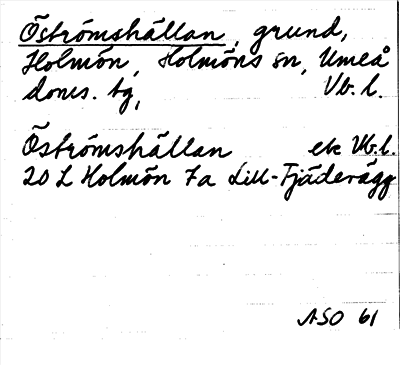 Öströmshällan, grund,
Holmön, Holmöns sn, Umeå
doms. tg, Vb. l.
Öströmshällan ek Vb.l.
20 L Holmön 7a Lill-Fjäderägg
ASO 61